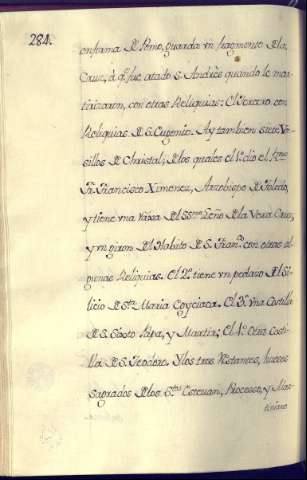 284.
en forma de Pomo, guarda un fragmento de la
Cruz, à q.e fue atado S. Andrès quando le mar-
tirizaron, con otras Reliquias: El tercero con
Reliquias de S. Eugenio. Ay tambien siete Va-
sillos de Christal, de los quales el 1.o dio el
Fr. Francisco Ximenez, Arzobispo de Toledo,
y tiene una raxa del SS.mo Leño de la Vera Cruz,
y un giron del Habito de S. Fran.co con otras al-
gunas Reliquias. El 2.o tiene un pedazo del Si-
licio de S.ta Maria Egypciaca. El 3.o una Costilla
de S. Sixto Papa, y Martir; El 4.o Otra Costi-
lla de S. Teodoro. Y los tres restantes, huesos
sagrados de los S.tos Estevan, Processo, y Mar-
tiniano